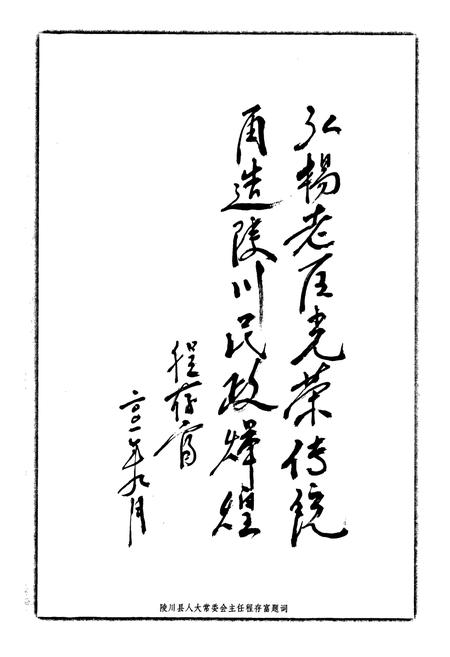 弘扬老区光荣传统
再造陵川民政辉煌
程存富
二〇〇一年九月
陵川县人大常委会主任程存富题词